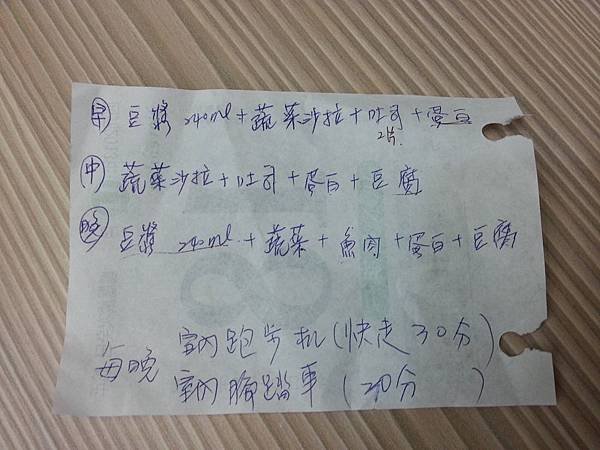 早 豆漿 240ml + 蔬菜沙拉 + 吐司 + 蛋白
2片.
中 蔬菜沙拉 + 吐司 + 蛋白 + 豆腐
晚 豆漿 240ml + 蔬菜 + 魚肉 + 蛋白 + 豆腐
每晚
室內跑步机 (快走30分)
室內腳踏車 (20分)